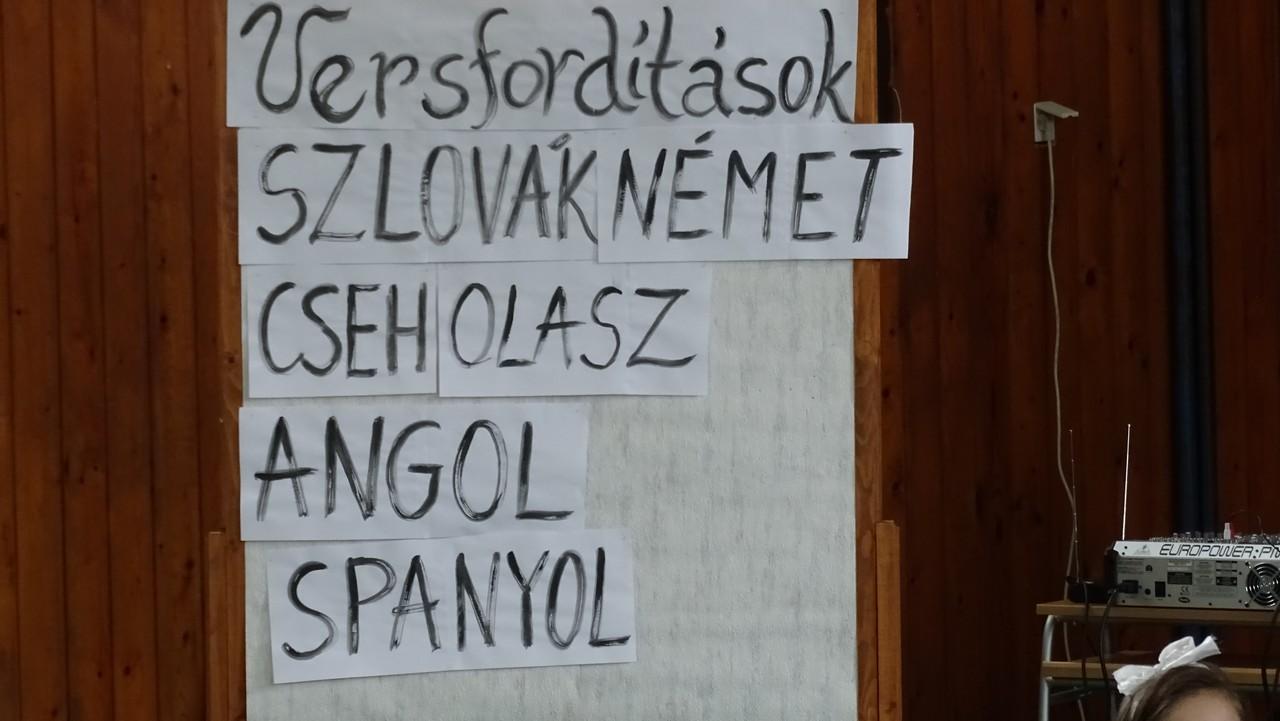 Versfordítások
SZLOVÁK NÉMET
CSEH OLASZ
ANGOL
SPANYOL
EUROPOWER